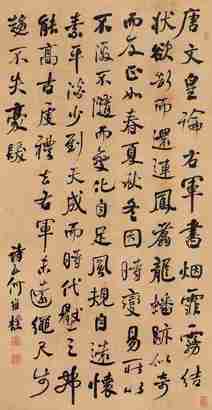 唐文皇論右軍書烟霏霧結
狀欲斷而還連鳳翥龍蟠跡似奇
而反正如春夏秋冬因時變易所以
不複不隨而變化自足風規自遠懷
素平淡少到天成而時代壓之弗
能高古虞禮去右軍未遠繩尺步
趨不失豪髮
詩五何